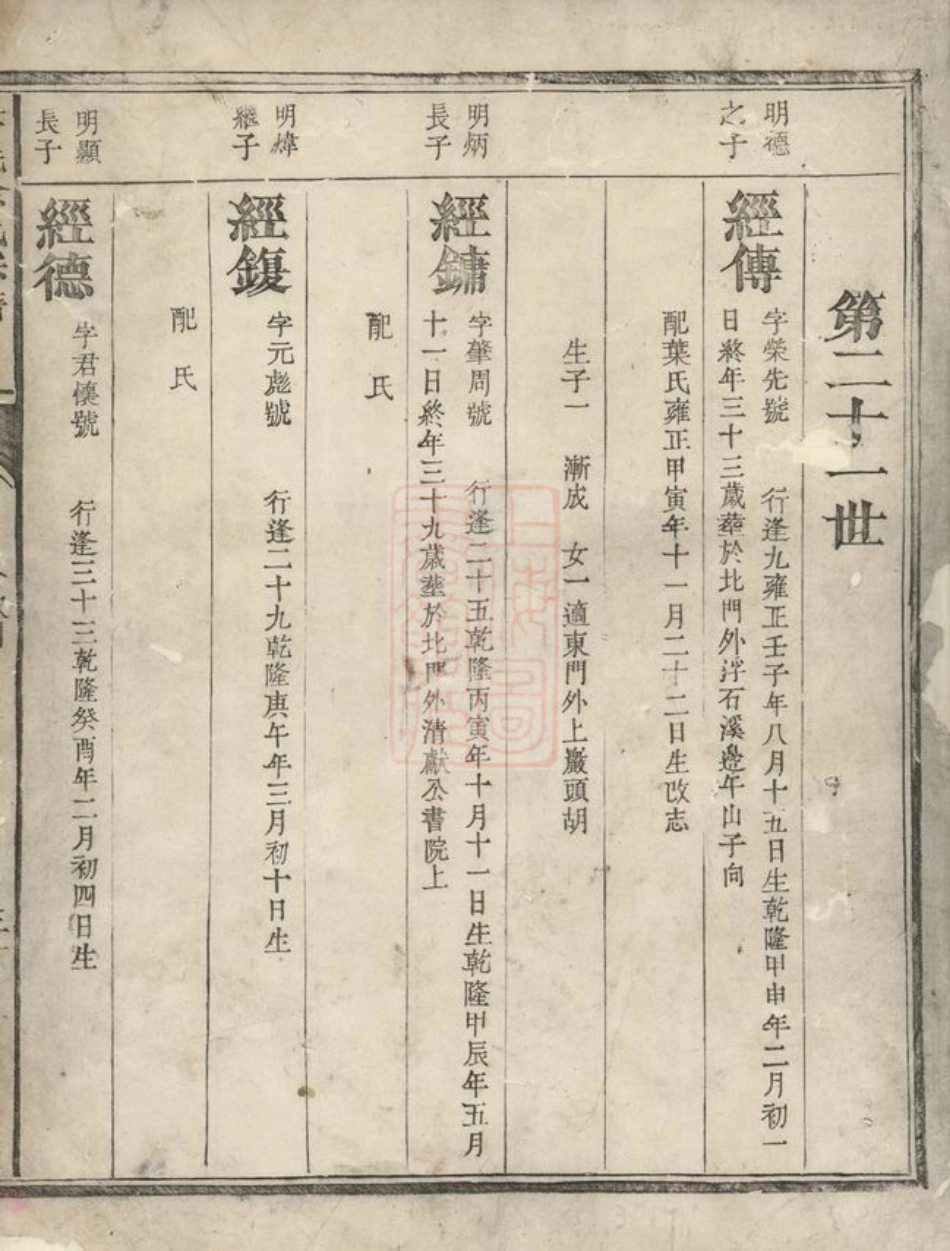 第二十一世
明德
之子
經傳
字榮先號 行逢九雍正壬子年八月十五日生乾隆甲申年二月初一
日終年三十三歲葬於北門外浮石溪邊午山子向
配葉氏雍正甲寅年十一月二十二日生改志
生子一 漸成 女一適東門外上巖頭胡
明炳
長子
經鏞
字肇周號 行逢二十五乾隆丙寅年十月十一日生乾隆甲辰年五月
十一日終年三十九歲塟於北門外清獻公書院上
配 氏
明煒
繼子
經鍑
字元彪號 行逢二十九乾隆庚午年三月初十日生
配 氏
明顯
長子
經德
字君懷號 行逢三十三乾隆癸酉年二月初四日生